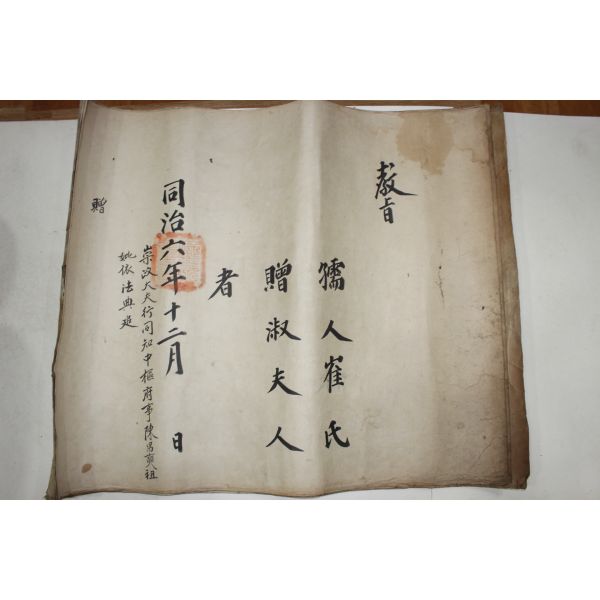 教旨
孺人崔氏
贈淑夫人
者
同治六年十二月 日
崇政大夫行同知中樞府事陳昌奭祖
妣依法典追
贈